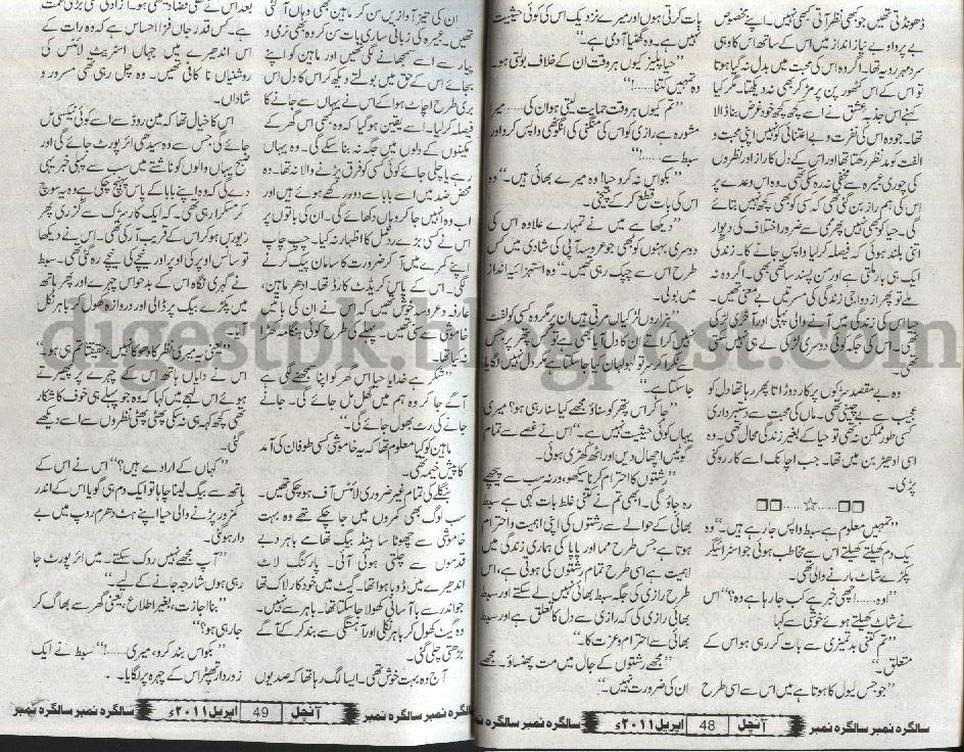 ڈھونڈتی تھیں جو کبھی نظر آتی کبھی نہیں۔ اپنے مخصوص
بے پروا و بے نیاز انداز میں اس کے ساتھ اس کا وہی
سرد مہر رویہ تھا۔ اگر وہ اس کی محبت میں بدل نہ گیا ہوتا
تو اس کے اس کٹھور پن پر مڑ کر بھی نہ دیکھتا۔ مگر کیا
کہنے اس جذبہ عشق نے اسے کچھ کچھ خود غرض بنا ڈالا
تھا۔ جو وہ اس کی نفرت و بے اعتنائی کو نہیں اپنی محبت و
الفت کو مدنظر رکھتا تھا اور اس کے دل کا راز اور نظروں
کی چوری عبیرہ سے مخفی نہ رہ سکی تھی۔ وہ اس وعدے پر
اس کی ہم راز بن گئی تھی کہ کسی کو بھی کچھ نہیں بتائے
گی۔ حیا کو بھی نہیں پھر ہی سے ضرور اختلاف کی دیوار
اتنی بلند ہوئی کہ فیصلہ کر لیا واپس جانے کا۔ زندگی
ایک ہی بار ملتی ہے اور من پسند ساتھی بھی۔ اگر وہ نہ
ملے تو پھر ازدواجی زندگی کی مسرتیں بے معنی تھیں۔
حیا اس کی زندگی میں آنے والی پہلی اور آخری لڑکی
تھی۔ اس کی جگہ کوئی دوسری لڑکی لے ہی نہیں سکتی
تھی۔
وہ بے مقصد سڑکوں پر کار دوڑاتا پھر رہا تھا دل کو
عجیب سے بے چینی تھی۔ ماں کی محبت سے دستبرداری
کسی طور ممکن نہ تھی تو حیا کے بغیر زندگی محال تھی۔ وہ
اسی ادھیڑ بن میں تھا۔ جب اچانک اسے کار روکنی
پڑی۔
□□......☆......□□
”تمہیں معلوم ہے سبط واپس جا رہے ہیں۔“ وہ
یک دم کھیلتے کھیلتے اس سے مخاطب ہوئی جو اسٹرائیگر
پکڑے شاٹ مارنے والی تھی۔
”اوہ...... اچھی خبر ہے کب جا رہا ہے وہ؟“ اس
نے شاٹ کھیلتے ہوئے خوشی سے کہا
”تم کتنی بدتمیزی سے بات کر رہی ہو اس کے
متعلق۔“
”جو جس لیول کا ہوتا ہے میں اس سے اسی طرح
بات کرتی ہوں اور میرے نزدیک اس کی کوئی حیثیت
نہیں ہے۔ وہ گھٹیا آدمی ہے۔“
”حیا پلیز کیوں ہر وقت ان کے خلاف بولتی ہو۔
وہ تمہیں کتنا......!“
”تم کیوں ہر وقت حمایت لیتی ہو ان کی...... میرا
مشورہ ہے رازی کو اس کی منگنی کی انگوٹھی واپس کرو اور
سبط سے......!“
”بکواس نہ کرو حیا! وہ میرے بھائی ہیں۔“ وہ
اس کی بات قطع کر کے چیخی۔
”دیکھا ہے میں نے تمہارے علاوہ اس کی
دوسری بہنوں کو بھی جو عروسہ آپی کی شادی میں کس
طرح اس سے چپک رہی تھیں۔“ وہ استہزائیہ انداز
میں بولی۔
”ہزاروں لڑکیاں مرتی ہیں ان پر مگر وہ کسی کو لفٹ
نہیں کراتے ان کا دل آیا بھی ہے تو کس پتھر پر جس
سے ٹکرا کر سر تو لہولہان کیا جا سکتا ہے مگر دل نہیں لگایا
جا سکتا ہے۔“
”جا کر اس پتھر کو سناؤ مجھے کیا سنا رہی ہو؟ میری
یہاں کوئی حیثیت نہیں ہے۔“ اس نے غصے سے تمام
گوٹیں اچھال دیں اور اٹھ کھڑی ہوئی۔
”رشتوں کا احترام کرنا سیکھو ورنہ سب سے پیچھے
رہ جاؤ گی۔ ابھی تم نے کتنی غلط بات کہی ہے سبط
بھائی کے حوالے سے رشتوں کی اپنی اہمیت و احترام
ہوتا ہے جس طرح مما اور پاپا کی ہماری زندگی میں
اہمیت ہے اسی طرح تمام رشتوں کی ہوتی ہے، اس
طرح رازی کی جگہ سبط بھائی نہیں لے سکتے اور سبط
بھائی رازی کی کہ رازی سے دل کا تعلق ہے اور سبط
بھائی سے احترام و عزت کا۔“
”مجھے رشتوں کے جال میں مت پھنساؤ۔ مجھے
ان کی ضرورت نہیں۔“
سالگرہ نمبر سالگرہ نمبر آنچل 48 اپریل ۲۰۱۱ء سالگرہ نمبر سالگرہ نمبر
ان کی تیز آوازیں سن کر ماہین بھی وہاں آ گئی
تھیں۔ عبیرہ کی زبانی ساری بات سن کر وہ بھی نرمی و
پیار سے اسے سمجھانے لگی تھیں اور ماہین کو اپنے
بجائے اس کے حق میں بولتے دیکھ کر اس کا دل اس
بری طرح اچاٹ ہوا کہ اس نے یہاں سے جانے کا
فیصلہ کر لیا۔ اسے یقین ہو گیا کہ وہ کبھی اس گھر کے
مکینوں کے دلوں میں جگہ نہ بنا سکے گی۔ وہ یہاں
رہے یا چلی جائے کوئی کسی کو فرق پڑنے والا نہ تھا۔ وہ
محض ضد میں اسے بابا سے دور رکھے ہوئے ہیں اور
اب وہ انہیں جا کر وہاں دکھائے گی۔ ان کی باتوں پر
اس نے کسی بڑے ردعمل کا اظہار نہ کیا۔ چپ چاپ
اپنے کمرے میں آ کر ضرورت کا سامان پیک کرنے
لگی۔ اس کے پاس کریڈٹ کارڈ تھا۔ ادھر ماہین،
عارفہ و عروسہ خوش تھیں کہ اس نے ان کی باتیں
خاموشی سے سنی تھیں۔ پہلے کی طرح کوئی ہنگامہ نہ
کیا تھا۔
”شکر ہے خدایا حیا اس گھر کو اپنا سمجھنے لگی ہے
آگے جا کر وہ ہم میں گھل مل جائے گی۔ جانے
جانے کی رٹ بھول جائے گی۔“
ماہین کو کیا معلوم تھا کہ یہ خاموشی کسی طوفان کی آمد
کا پیش خیمہ تھی۔
بنگلے کی تمام غیر ضروری لائٹس آف ہو چکی تھیں۔
سب لوگ بھی کمروں میں جا چکے تھے وہ بہت
خاموشی سے چھوٹا سا ہینڈ بیگ تھامے باہر دبے
قدموں سے چلتی ہوئی آئی۔ پارکنگ لاٹ
اندھیرے میں ڈوبا ہوا تھا۔ گیٹ میں خودکار لاک تھا
جو اندر سے با آسانی کھولا جا سکتا تھا۔ باہر سے نہیں۔
وہ گیٹ کھول کر باہر نکلی اور آہستگی سے بند کر کے آگے
بڑھتی چلی گئی۔
آج وہ بہت خوش تھی۔ ایسا لگ رہا تھا کہ صدیوں
ہے۔ کس قدر جاں فزا احساس ہے کہ وہ رات کے
اس اندھیرے میں جہاں اسٹریٹ لائٹس کی
روشنیاں ناکافی تھیں۔ وہ چل رہی تھی مسرور و
شاداں۔
اس کا خیال تھا کہ مین روڈ سے اسے کوئی ٹیکسی مل
جائے گی جس سے وہ سیدھی ائیرپورٹ جائے گی اور
صبح یہاں والوں کو ناشتے میں سب سے پہلی خبر یہی
دے گی کہ وہ اپنے بابا کے پاس پہنچ چکی ہے وہ یہ سوچ
کر مسکرا رہی تھی۔ کہ ایک کار سڑک سے گزری پھر
ریورس ہو کر اس کے قریب آ رکی تھی۔ اس نے دیکھا
تو سانس اوپر کی اوپر اور نیچے کی نیچے رہ گئی تھی۔ سبط
نے گہری نگاہ اس کے بدحواس چہرے اور پھر ہاتھ
میں پکڑے بیگ پر ڈالی اور دروازہ کھول کر باہر نکل
آیا۔
”یعنی یہ میری نظر کا دھوکا نہیں، حقیقتاً تم ہی ہو۔“
اس نے دایاں ہاتھ اس کے چہرے پر پھیرتے
ہوئے اس لہجے میں کہا کہ وہ جو پہلے ہی خوف کا شکار
تھی کچھ کہہ ہی نہ سکی پھٹی پھٹی نظروں سے اسے دیکھے
گئی۔
”کہاں کے ارادے ہیں؟“ اس نے اس کے
ہاتھ سے بیگ لینا چاہا تو ایک دم ہی گویا اس کے اندر
کمزور پڑنے والی حیا اپنے ہٹ دھرم روپ میں بے
دار ہوئی۔
”آپ مجھے نہیں روک سکتے۔ میں ائیرپورٹ جا
رہی ہوں شارجہ جانے کے لیے۔“
”بنا اجازت، بغیر اطلاع، یعنی گھر سے بھاگ کر
جا رہی ہو؟“
”بکواس بند کرو، میری......!“ سبط نے ایک
زوردار تھپڑ اس کے چہرہ پر لگایا۔
سالگرہ نمبر سالگرہ نمبر آنچل 49 اپریل ۲۰۱۱ء سالگرہ نمبر سالگرہ نمبر
digestpk.blogspot.com